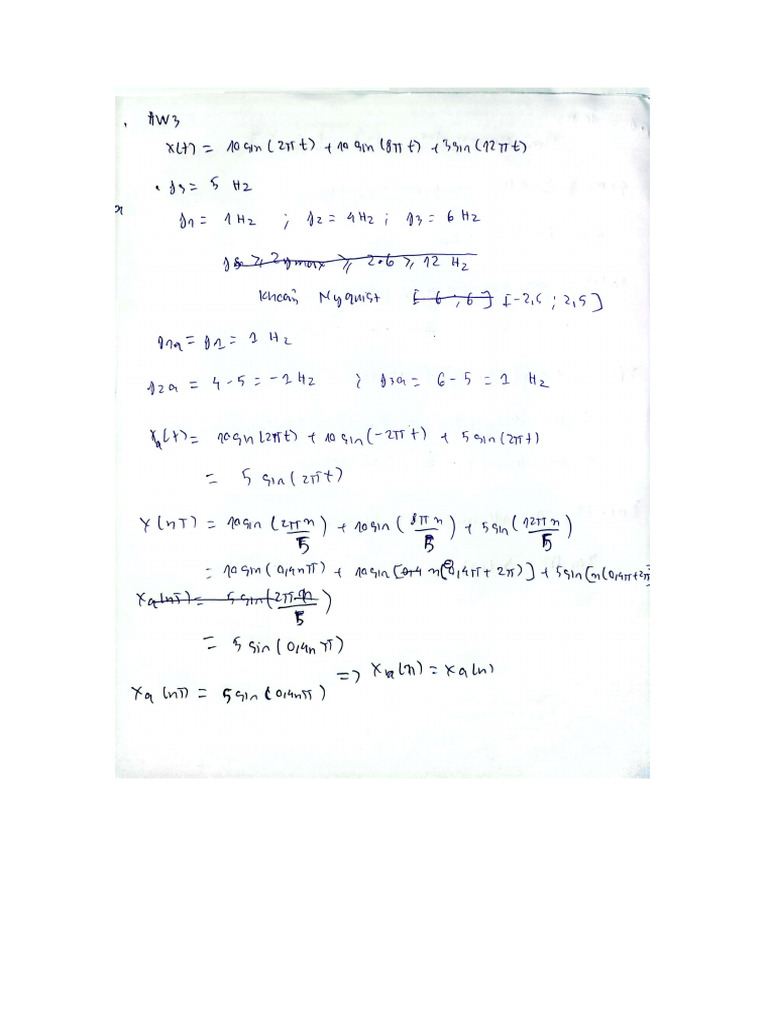 HW3
x(t) = 10 sin(2π t) + 10 sin(8π t) + 3 sin(12π t)
. fs = 5 Hz
x
f1 = 1 Hz ; f2 = 4 Hz ; f3 = 6 Hz
fs ≥ 2fmax ≥ 2.6 ≥ 12 Hz
Khoảng Nyquist [-6 ; 6] [-2,5 ; 2,5]
f1a = f1 = 1 Hz
f2a = 4 - 5 = -1 Hz ; f3a = 6 - 5 = 1 Hz
xa(t) = 10 sin(2π t) + 10 sin(-2π t) + 5 sin(2π t)
= 5 sin(2π t)
x(nT) = 10 sin(2πn/5) + 10 sin(8πn/5) + 5 sin(12πn/5)
= 10 sin(0,4nπ) + 10 sin[0,4 n(-0,4π + 2π)] + 5 sin[n(0,4π + 2π
xa(nT) = 5 sin(2πn/5)
= 5 sin(0,4nπ)
=> xa(n) = xa(n)
xa(nT) = 5 sin(0,4nπ)